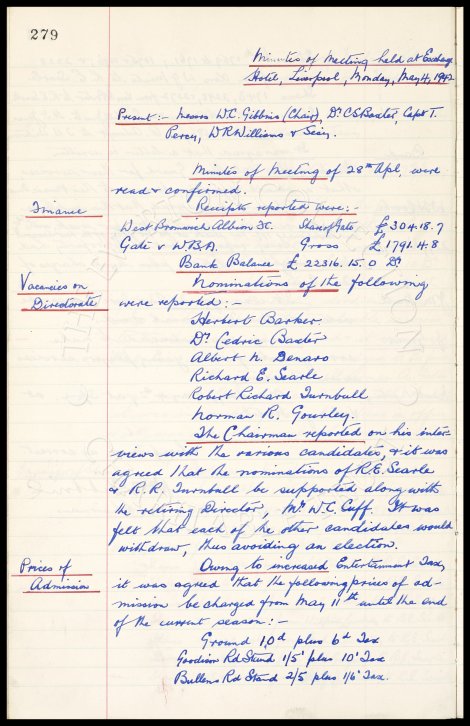 279
Minutes of Meeting held at Exchange
Hotel, Liverpool, Monday, May 4, 1942
Present:- Messrs W.C. Gibbins (Chair), Dr C.S. Baxter, Capt T.
Percy, W R Williams & Secy.
Minutes of Meeting of 28th Apl. were
read & confirmed.
Finance
Receipts reported were:-
West Bromwich Albion F.C. Share of Gate £304.18.7
Gate v W.B.A. Gross £1791.4.8
Bank Balance £22316.15.0 Dr
Vacancies on
Directorate
Nominations of the following
were reported:-
Herbert Barker
Dr Cedric Baxter
Albert N. Denaro
Richard E. Searle
Robert Richard Turnbull
Norman R. Gourley.
The Chairman reported on his inter-
views with the various candidates, & it was
agreed that the nominations of R.E. Searle
& R.R. Turnbull be supported along with
the retiring Director, Mr W.C. Cuff. It was
felt that each of the other candidates would
withdraw, thus avoiding an election.
Prices of
Admission
Owing to increased Entertainment Tax,
it was agreed that the following prices of ad-
mission be charged from May 11th until the end
of the current season:-
Ground 10d plus 6d Tax
Goodison Rd Stand 1/5 plus 10 Tax
Bullens Rd Stand 2/5 plus 1/6 Tax.